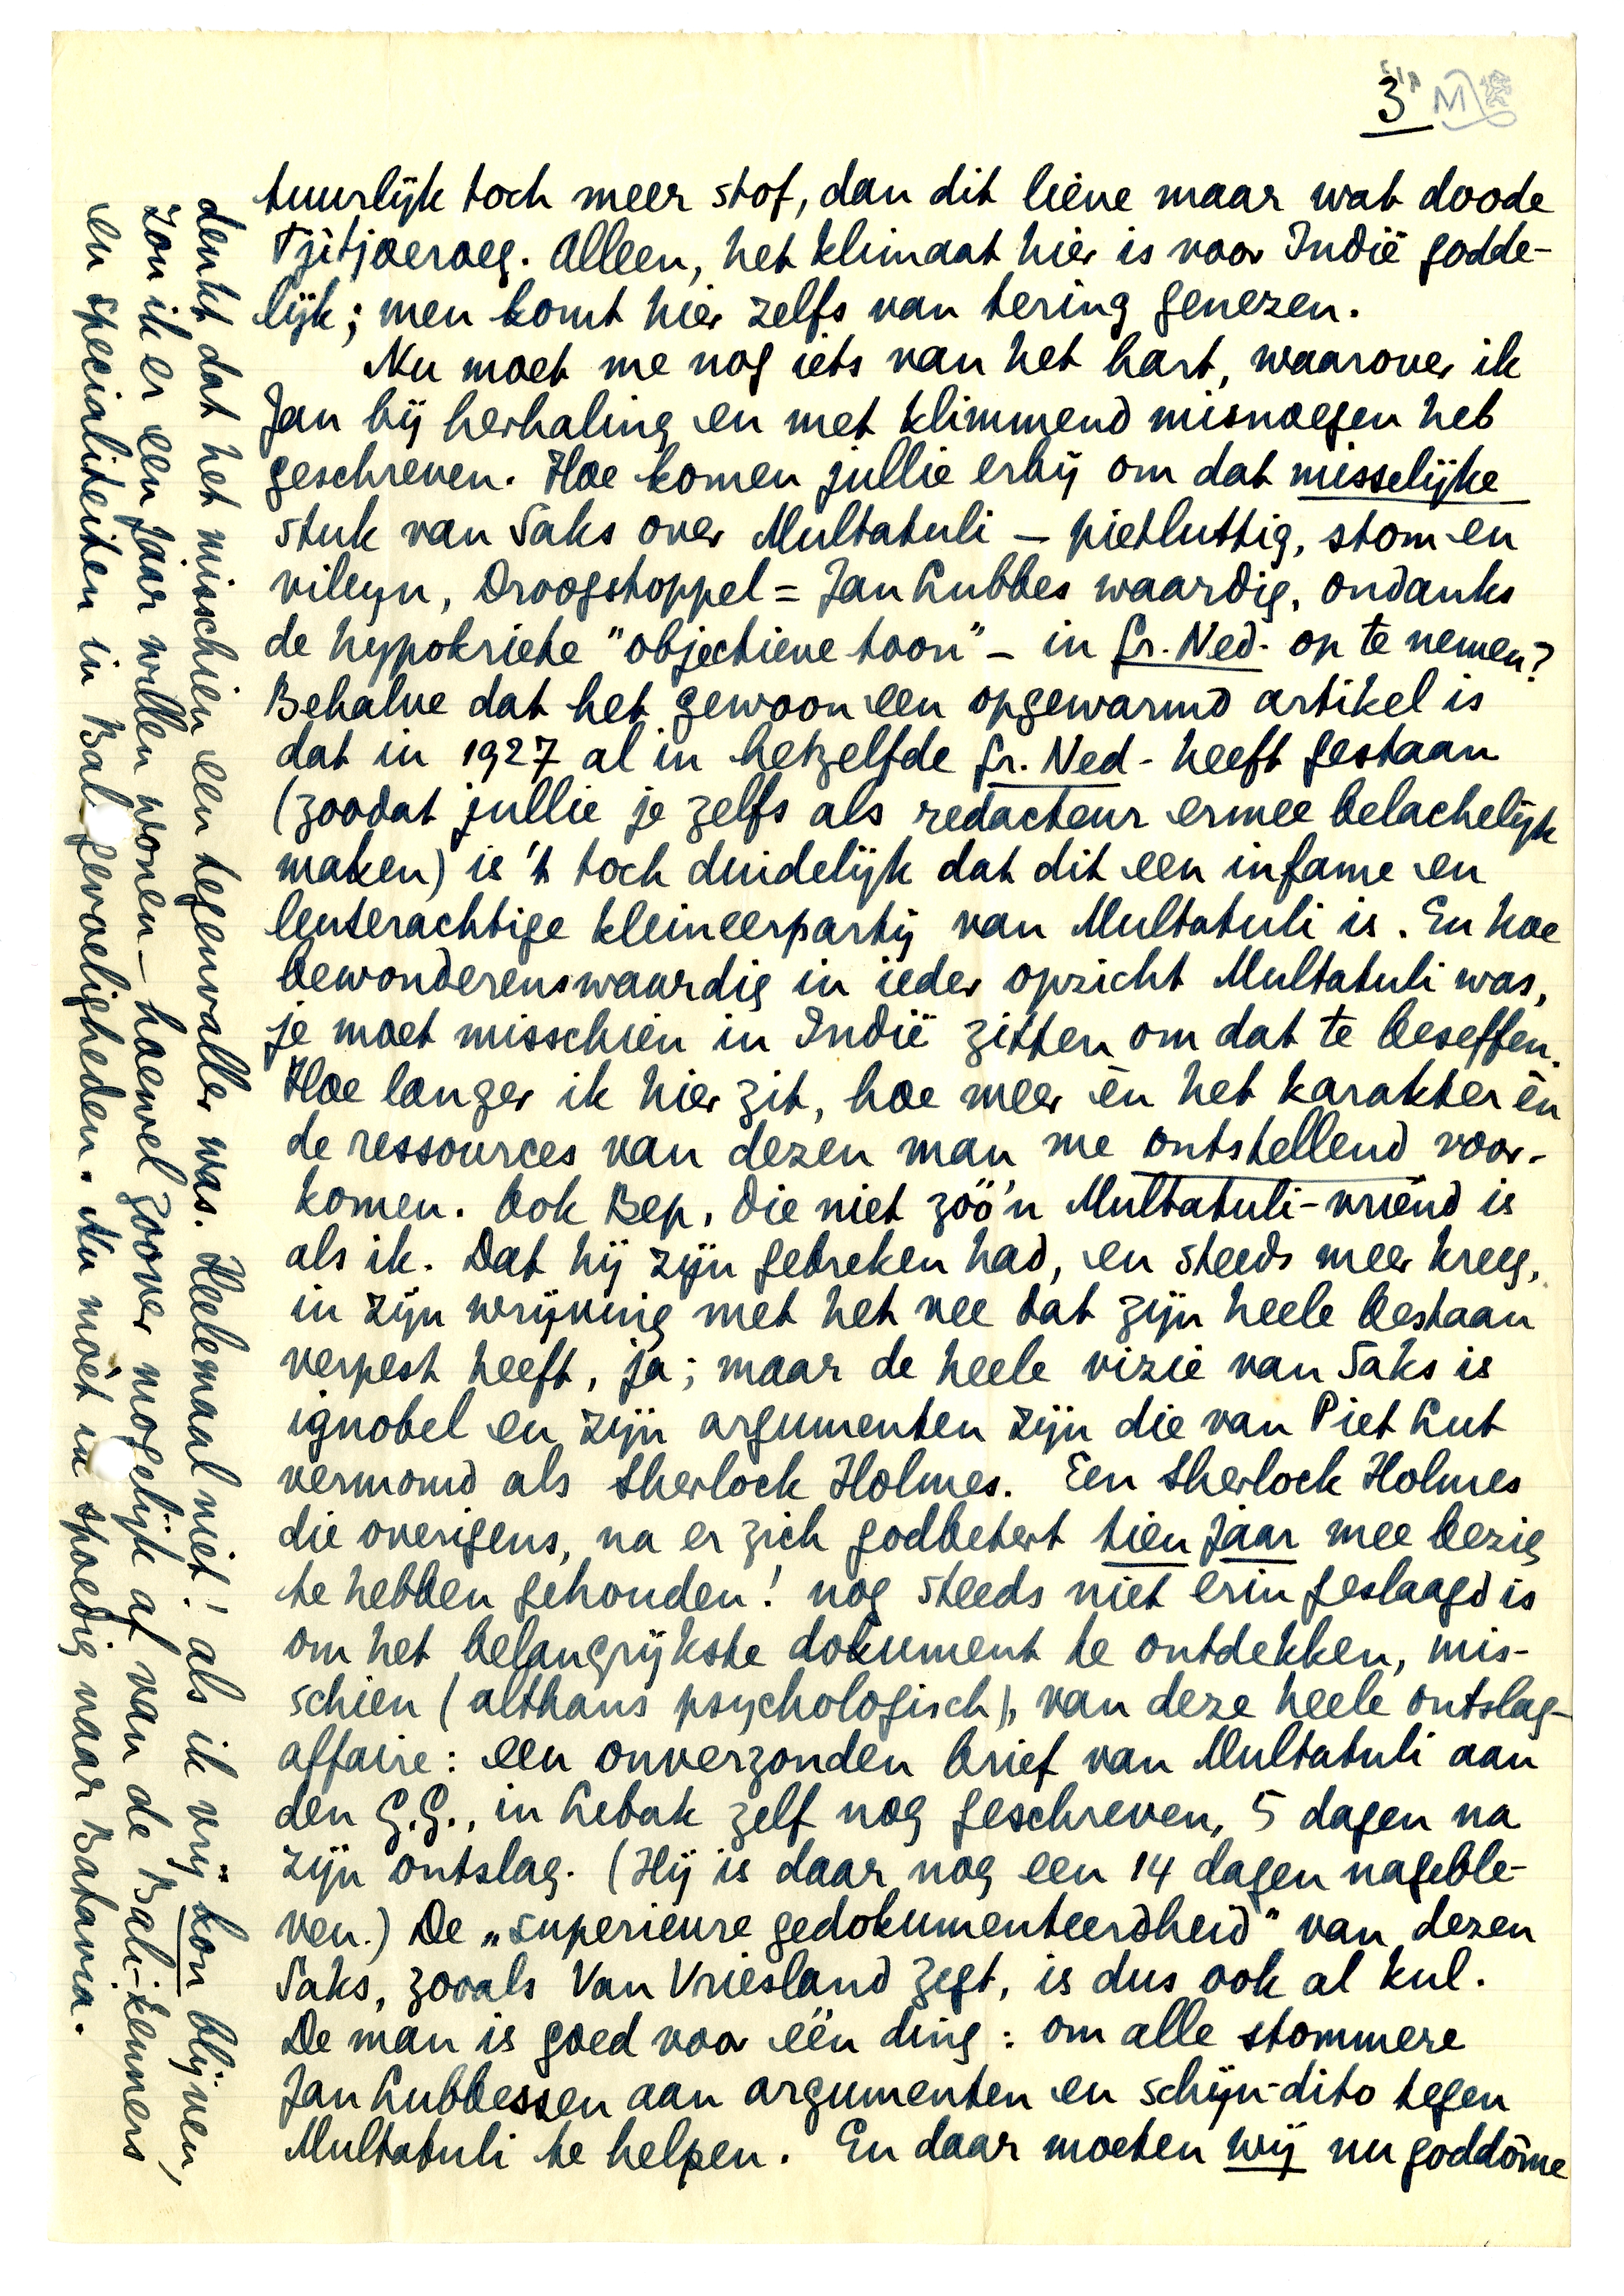 3
M
tuurlijk toch meer stof, dan dit lieve maar wat doode
Tjitjoeroeg. Alleen, het klimaat hier is voor Indië godde-
lijk; men komt hier zelfs van tering genezen.
Nu moet me nog iets van het hart, waarover ik
Jan bij herhaling en met klimmend misnoegen heb
geschreven. Hoe komen jullie erbij om dat misselijke
stuk van Saks over Multatuli – pietluttig, stom en
vileyn, Droogstoppel = Jan Lubbes waardig, ondanks
de hypokriete "objectieve toon" – in Gr. Ned. op te nemen?
Behalve dat het gewoon een opgewarmd artikel is
dat in 1927 al in hetzelfde Gr. Ned. heeft gestaan
(zoodat jullie je zelfs als redacteur ermee belachelijk
maken) is 't toch duidelijk dat dit een infame en
leuterachtige kleineerpartij van Multatuli is. En hoe
bewonderenswaardig in ieder opzicht Multatuli was,
je moet misschien in Indië zitten om dat te beseffen.
Hoe langer ik hier zit, hoe meer èn het karakter èn
de ressources van dezen man me ontstellend voor-
komen. Ook Bep, die niet zóó'n Multatuli-vriend is
als ik. Dat hij zijn gebreken had, en steeds meer kreeg,
in zijn wrijving met het vee dat zijn heele bestaan
verpest heeft, ja; maar de heele vizie van Saks is
ignobel en zijn argumenten zijn die van Piet Lut
vermomd als Sherlock Holmes. Een Sherlock Holmes
die overigens, na er zich godbetert tien jaar mee bezig
te hebben gehouden! nog steeds niet erin geslaagd is
om het belangrijkste dokument te ontdekken, mis-
schien (althans psychologisch), van deze heele ontslag-
affaire: een onverzonden brief van Multatuli aan
den G.G., in Lebak zelf nog geschreven, 5 dagen na
zijn ontslag. (Hij is daar nog een 14 dagen nageble-
ven.) De „superieure gedokumenteerdheid" van dezen
Saks, zooals Van Vriesland zegt, is dus ook al kul.
De man is goed voor één ding: om alle stommere
Jan Lubbessen aan argumenten en schijn-dito tegen
Multatuli te helpen. En daar moeten wij nu goddôme
denkt dat het misschien een tegenvaller was. Heelemaal niet! als ik vrij kon blijven,
zou ik er een jaar willen wonen – hoewel zoover mogelijk af van de Bali-kenners
en specialiteiten in Bal gevoeligheden. Nu moèt ik spoedig naar Batavia.